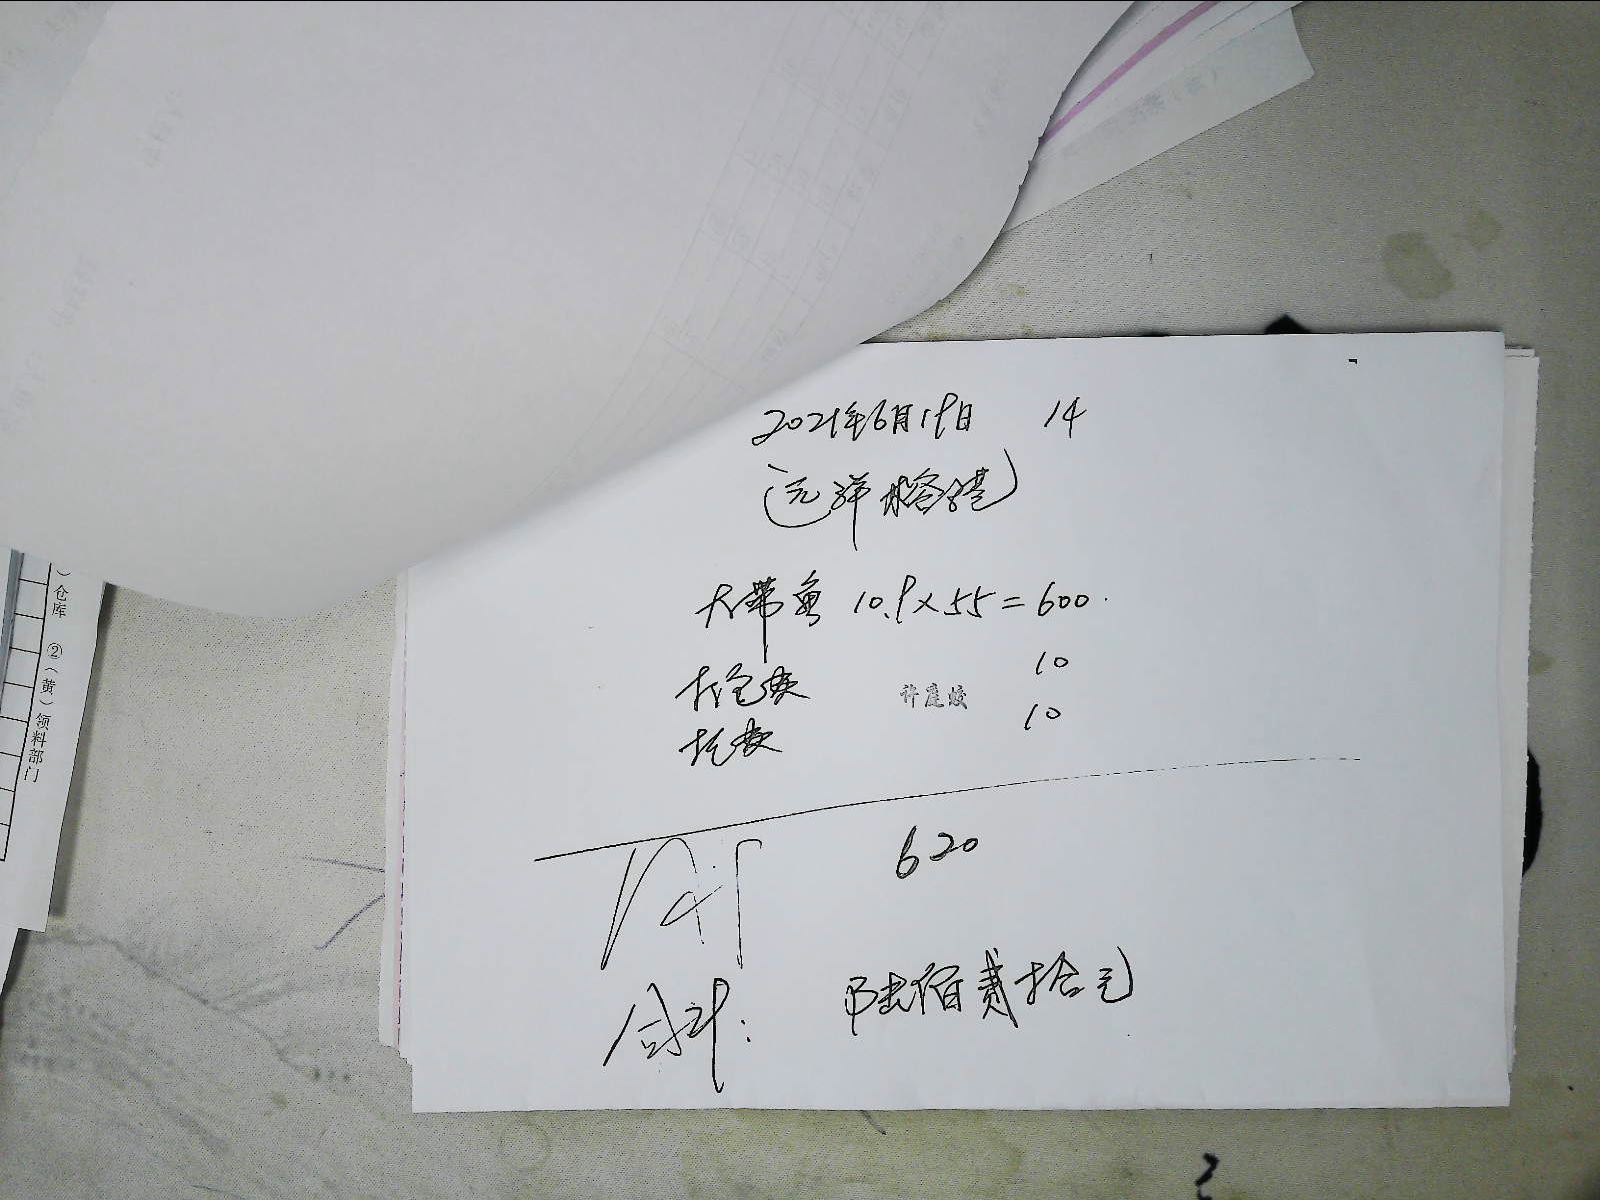 2021年6月19日 14
远洋榕港
大带鱼 10.9×55=600
打包费 10
许庭蛟
托费 10
620
合计: 陆佰贰拾元
)仓库 ②(黄)领料部门